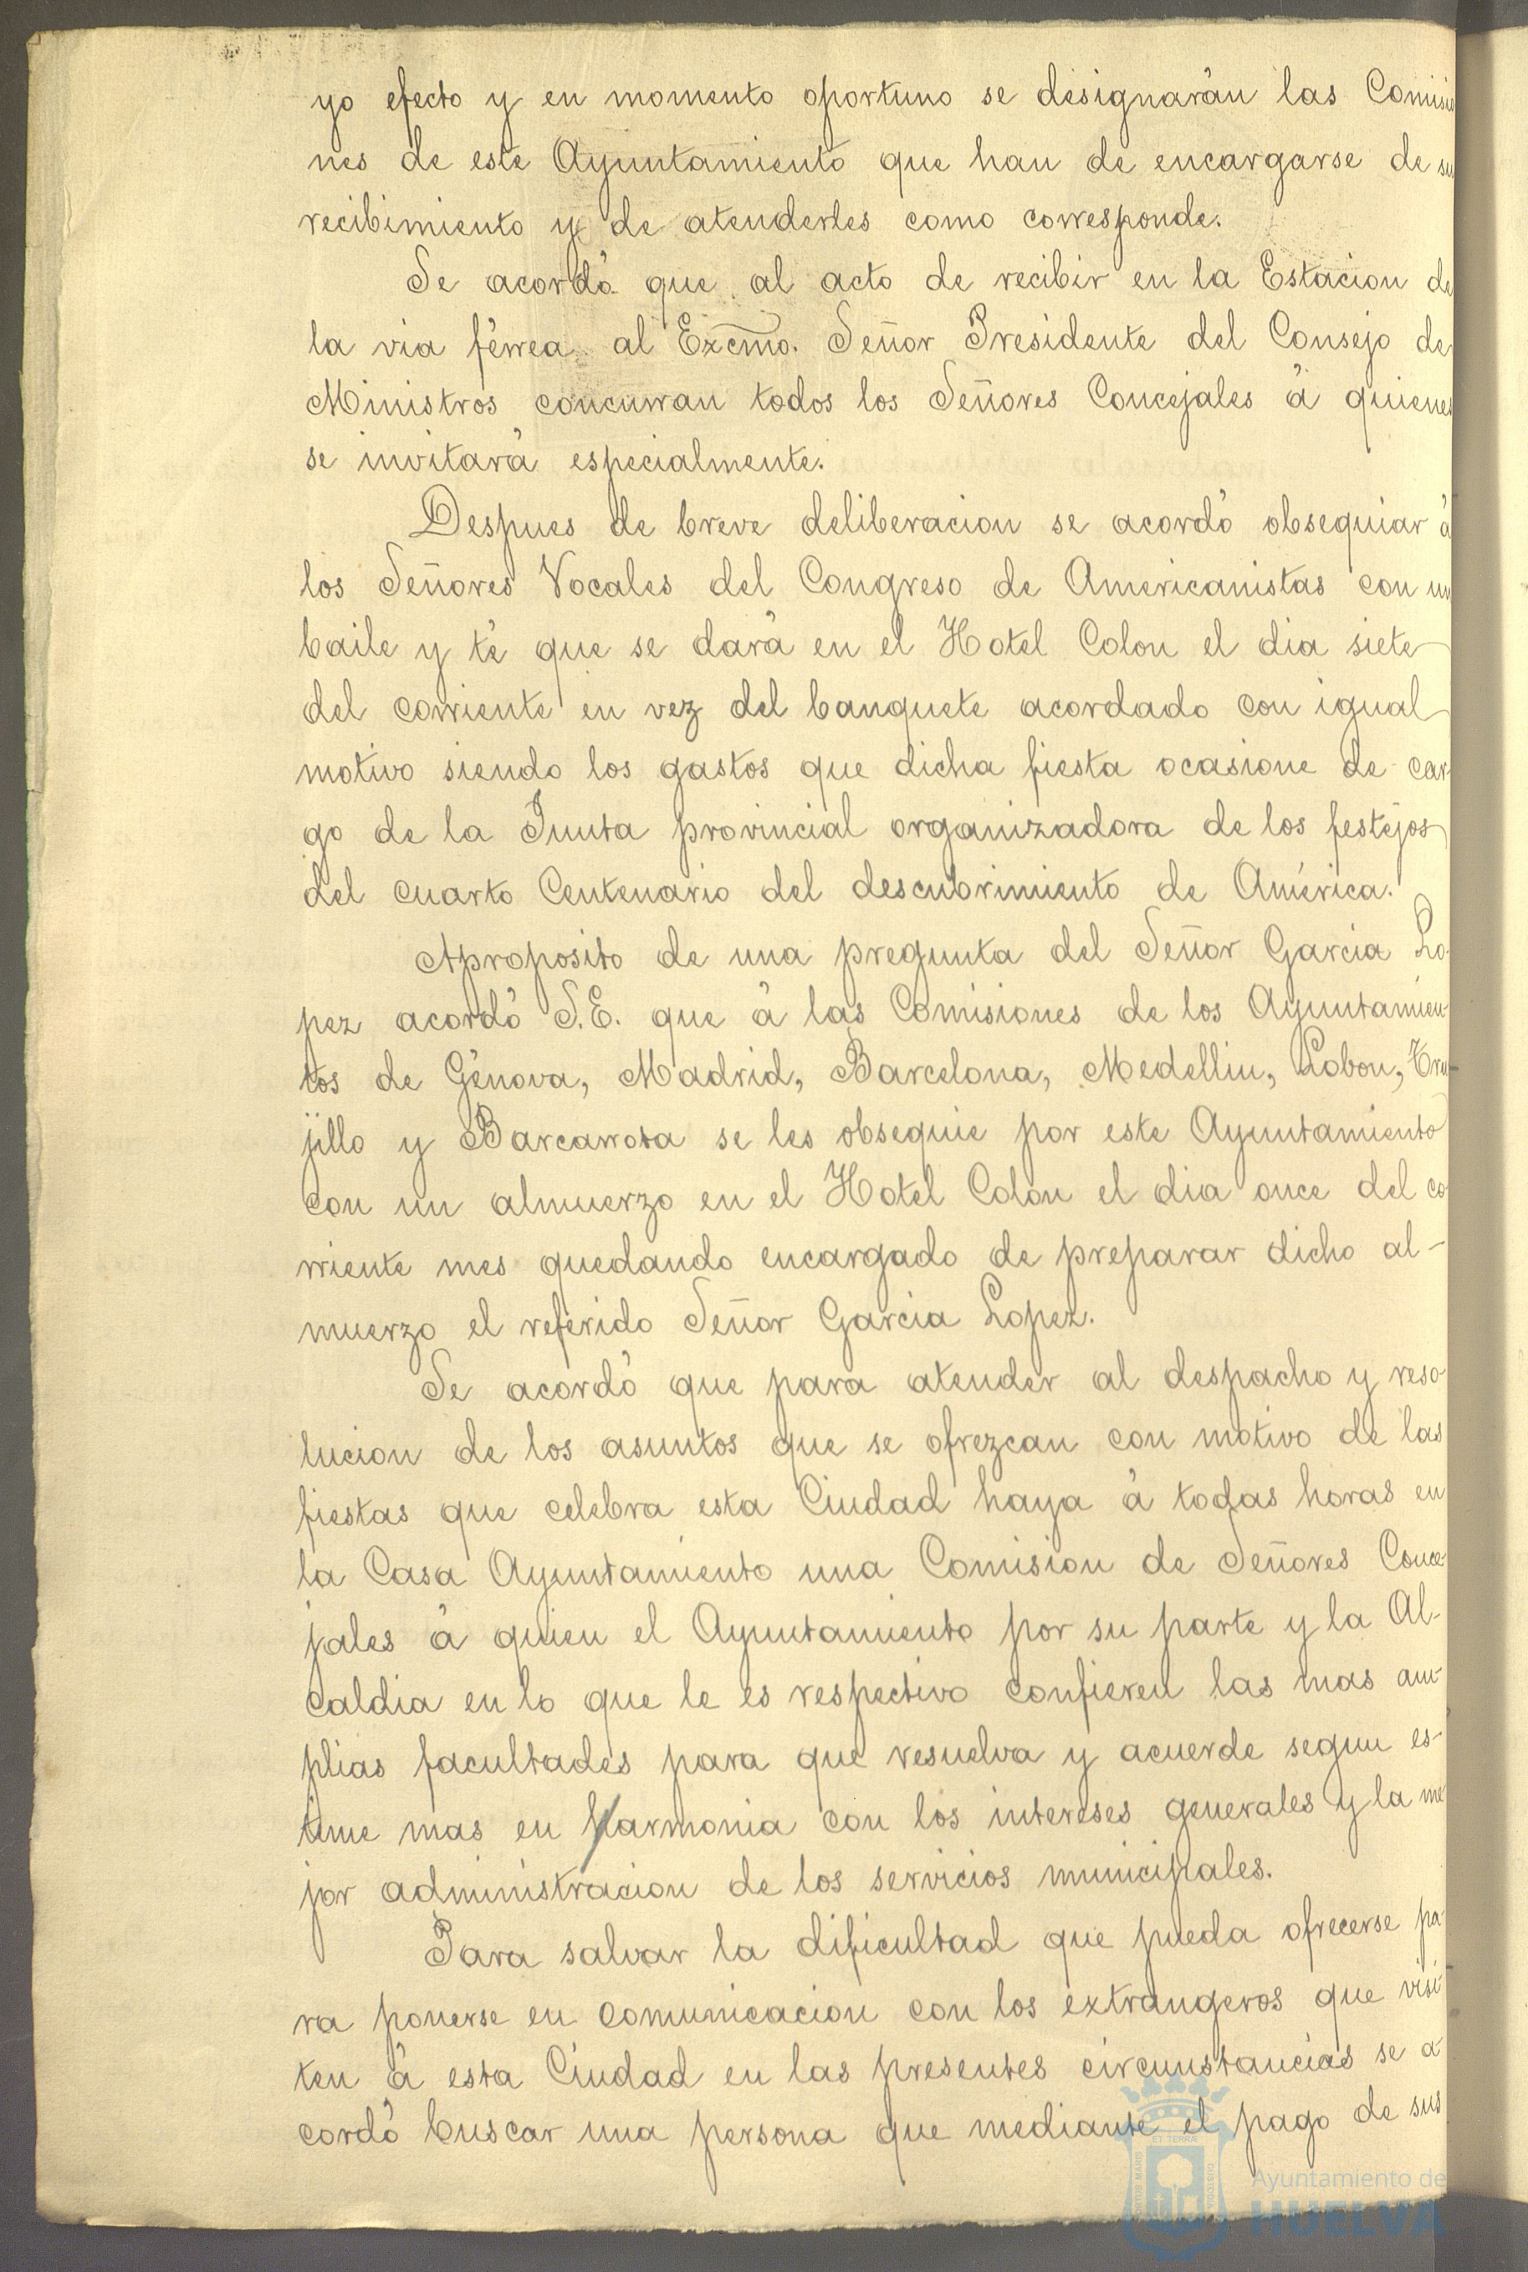 yo efecto y en momento oportuno se designarán las Comisio
nes de este Ayuntamiento que han de encargarse de su
recibimiento y de atenderles como corresponde.
Se acordó que al acto de recibir en la Estacion de
la via férrea al Excmo. Señor Presidente del Consejo de
Ministros concurran todos los Señores Concejales á quienes
se invitará especialmente.
Despues de breve deliberacion se acordó obsequiar á
los Señores Vocales del Congreso de Americanistas con un
baile y té que se dará en el Hotel Colon el dia siete
del corriente en vez del banquete acordado con igual
motivo siendo los gastos que dicha fiesta ocasione de car
go de la Junta provincial organizadora de los festejos
del cuarto Centenario del descubrimiento de América.
Aproposito de una pregunta del Señor Garcia Lo-
pez acordó S.E. que á las Comisiones de los Ayuntamien-
tos de Génova, Madrid, Barcelona, Medellin, Lobon, Tru-
jillo y Barcarrota se les obsequie por este Ayuntamiento
con un almuerzo en el Hotel Colon el dia once del co
rriente mes quedando encargado de preparar dicho al-
muerzo el referido Señor Garcia Lopez.
Se acordó que para atender al despacho y reso-
lucion de los asuntos que se ofrezcan con motivo de las
fiestas que celebra esta Ciudad haya á todas horas en
la Casa Ayuntamiento una Comision de Señores Conce-
jales á quien el Ayuntamiento por su parte y la Al-
caldia en lo que le es respectivo confieren las mas am-
plias facultades para que resuelva y acuerde segun es-
time mas en harmonia con los intereses generales y la me
jor administracion de los servicios municipales.
Para salvar la dificultad que pueda ofrecerse pa-
ra ponerse en comunicacion con los extrangeros que visi-
ten á esta Ciudad en las presentes circunstancias se a-
cordó buscar una persona que mediante el pago de sus
Ayuntamiento de
HUELVA